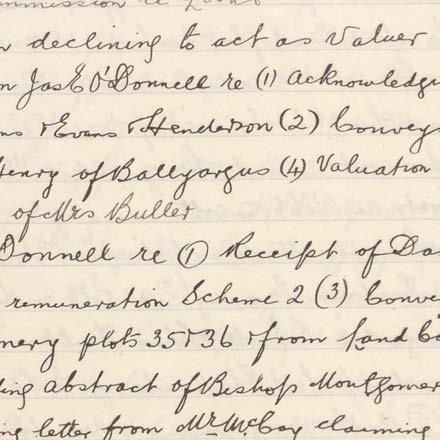 declining to act as Valuer
Jas E O'Donnell re (1) Acknowledg
ns & Evans & Henderson (2) Convey
Henry of Ballyargus (4) Valuation
of Mrs Buller
Donnell re (1) Receipt of Da
remuneration Scheme 2 (3) Conve
nery plots 35 & 36 & from Land Co
ding abstract of Bishop Montgomer
ng letter from Mr McCay claiming